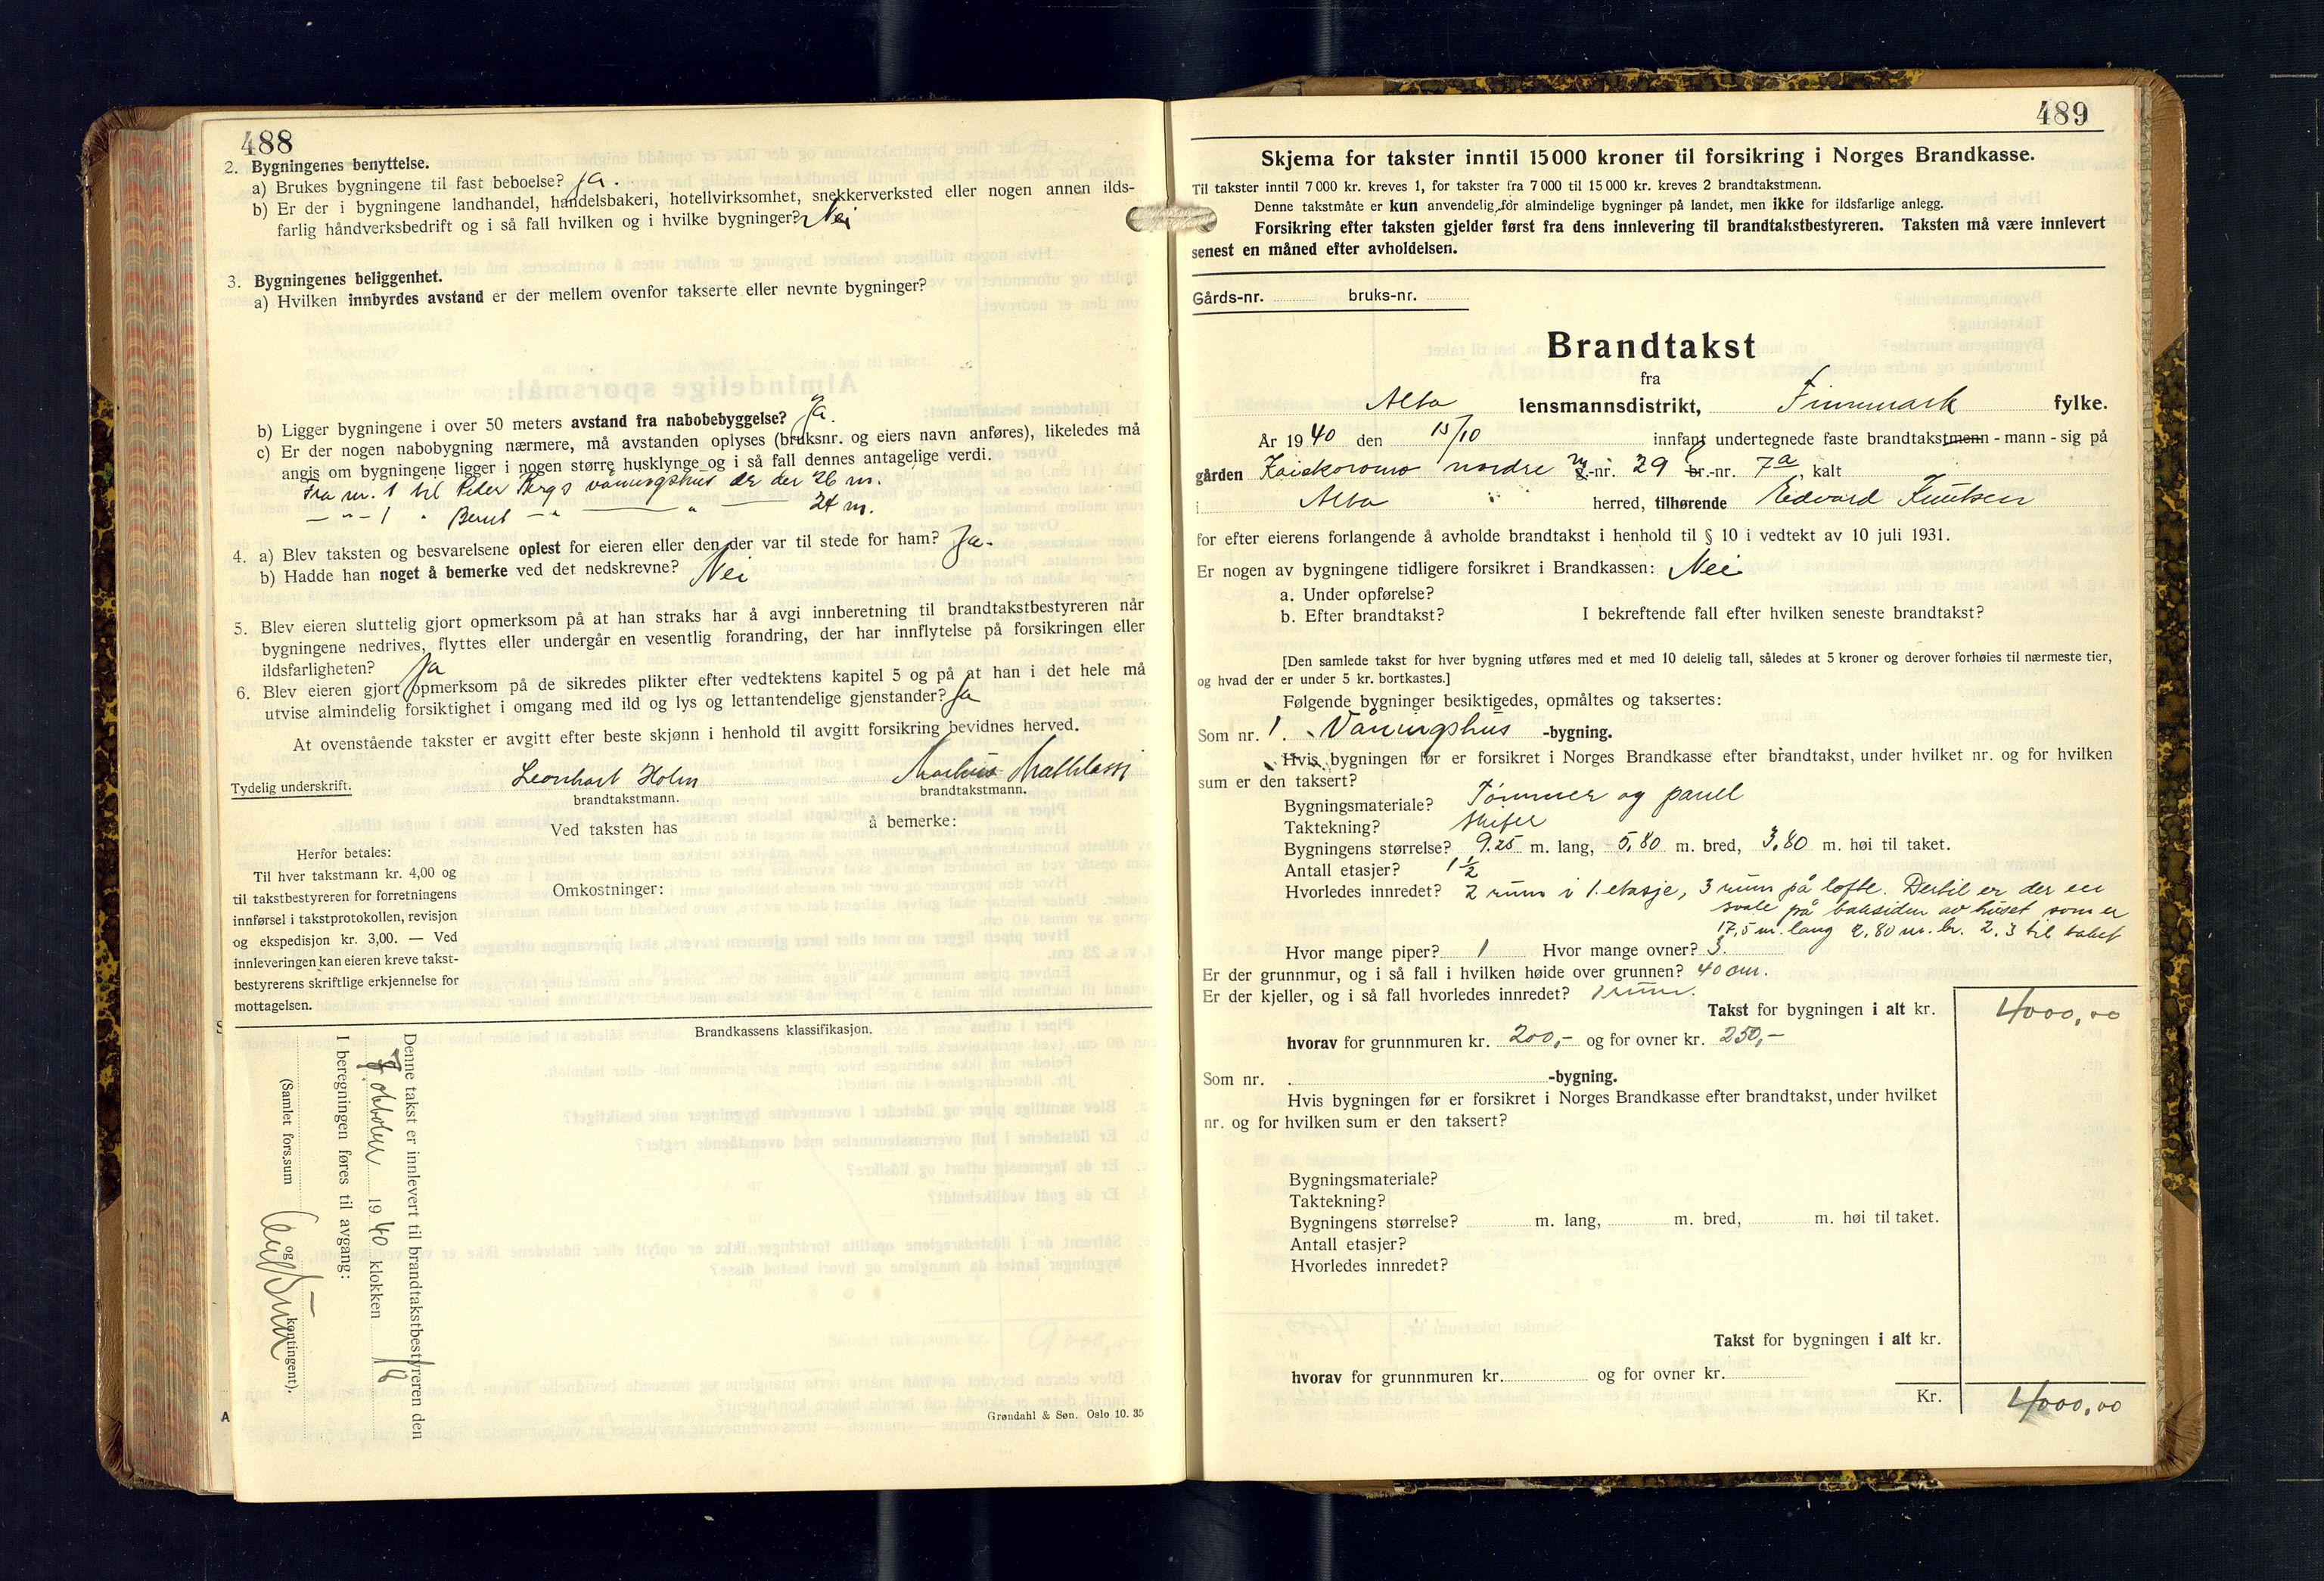 488
2. Bygningenes benyttelse.
a) Brukes bygningene til fast beboelse? Ja.
b) Er der i bygningene landhandel, handelsbakeri, hotellvirksomhet, snekkerverksted eller nogen annen ilds-
farlig håndverksbedrift og i så fall hvilken og i hvilke bygninger? Nei
3. Bygningenes beliggenhet.
a) Hvilken innbyrdes avstand er der mellem ovenfor takserte eller nevnte bygninger?
b) Ligger bygningene i over 50 meters avstand fra nabobebyggelse? Ja.
c) Er der nogen nabobygning nærmere, må avstanden oplyses (bruksnr. og eiers navn anføres), likeledes må
angis om bygningene ligger i nogen større husklynge og i så fall dennes antagelige verdi.
Fra nr. 1 til Peder Bergs våningshus er der 26 m.
— " — 1 " Bernt — " — " — 24 m.
4. a) Blev taksten og besvarelsene oplest for eieren eller den der var til stede for ham? Ja.
b) Hadde han noget å bemerke ved det nedskrevne? Nei
5. Blev eieren sluttelig gjort opmerksom på at han straks har å avgi innberetning til brandtakstbestyreren når
bygningene nedrives, flyttes eller undergår en vesentlig forandring, der har innflytelse på forsikringen eller
ildsfarligheten? Ja
6. Blev eieren gjort opmerksom på de sikredes plikter efter vedtektens kapitel 5 og på at han i det hele må
utvise almindelig forsiktighet i omgang med ild og lys og lettantendelige gjenstander? Ja
At ovenstående takster er avgitt efter beste skjønn i henhold til avgitt forsikring bevidnes herved.
Tydelig underskrift. Leonhart Holm
brandtakstmann. brandtakstmann.
Ved taksten has å bemerke:
Herfor betales:
Til hver takstmann kr. 4,00 og
til takstbestyreren for forretningens
innførsel i takstprotokollen, revisjon
og ekspedisjon kr. 3,00. — Ved
innleveringen kan eieren kreve takst-
bestyrerens skriftlige erkjennelse for
mottagelsen.
Omkostninger:
Brandkassens klassifikasjon.
Denne takst er innlevert til brandtakstbestyreren den
oktober 1940 klokken 18
I beregningen føres til avgang:
(Samlet fors.sum og kontingent).
Grøndahl & Søn. Oslo 10. 35
489
Skjema for takster inntil 15000 kroner til forsikring i Norges Brandkasse.
Til takster inntil 7000 kr. kreves 1, for takster fra 7000 til 15000 kr. kreves 2 brandtakstmenn.
Denne takstmåte er kun anvendelig for almindelige bygninger på landet, men ikke for ildsfarlige anlegg.
Forsikring efter taksten gjelder først fra dens innlevering til brandtakstbestyreren. Taksten må være innlevert
senest en måned efter avholdelsen.
Gårds-nr. bruks-nr.
Brandtakst
fra
Alta lensmannsdistrikt, Finnmark fylke.
År 1940 den 15/10 innfant undertegnede faste brandtakstmenn - mann - sig på
gården Kaiskoromo nordre g.-nr. 29 br.-nr. 7a, kalt
i Alta herred, tilhørende Edvard Knutsen
for efter eierens forlangende å avholde brandtakst i henhold til § 10 i vedtekt av 10 juli 1931.
Er nogen av bygningene tidligere forsikret i Brandkassen: Nei
a. Under opførelse?
b. Efter brandtakst? I bekreftende fall efter hvilken seneste brandtakst?
[Den samlede takst for hver bygning utføres med et med 10 delelig tall, således at 5 kroner og derover forhøies til nærmeste tier,
og hvad der er under 5 kr. bortkastes.]
Følgende bygninger besiktigedes, opmåltes og taksertes:
Som nr. 1. Våningshus -bygning.
Hvis bygningen før er forsikret i Norges Brandkasse efter brandtakst, under hvilket nr. og for hvilken
sum er den taksert?
Bygningsmateriale? Tømmer og panel
Taktekning? Skifer
Bygningens størrelse? 9.25 m. lang, 5,80 m. bred, 3,80 m. høi til taket.
Antall etasjer? 1 1/2
Hvorledes innredet? 2 rum i 1. etasje, 3 rum på lofte. Dertil er der en
svale på baksiden av huset som er
17,5 m. lang 2,80 m. br. 2.3 til taket
Hvor mange piper? 1 Hvor mange ovner? 3.
Er der grunnmur, og i så fall i hvilken høide over grunnen? 40 cm.
Er der kjeller, og i så fall hvorledes innredet? 1 rum.
Takst for bygningen i alt kr. 4000,00
hvorav for grunnmuren kr. 200,- og for ovner kr. 250,-
Som nr. -bygning.
Hvis bygningen før er forsikret i Norges Brandkasse efter brandtakst, under hvilket
nr. og for hvilken sum er den taksert?
Bygningsmateriale?
Taktekning?
Bygningens størrelse? m. lang, m. bred, m. høi til taket.
Antall etasjer?
Hvorledes innredet?
Takst for bygningen i alt kr.
hvorav for grunnmuren kr. og for ovner kr.
Kr. 4000,00